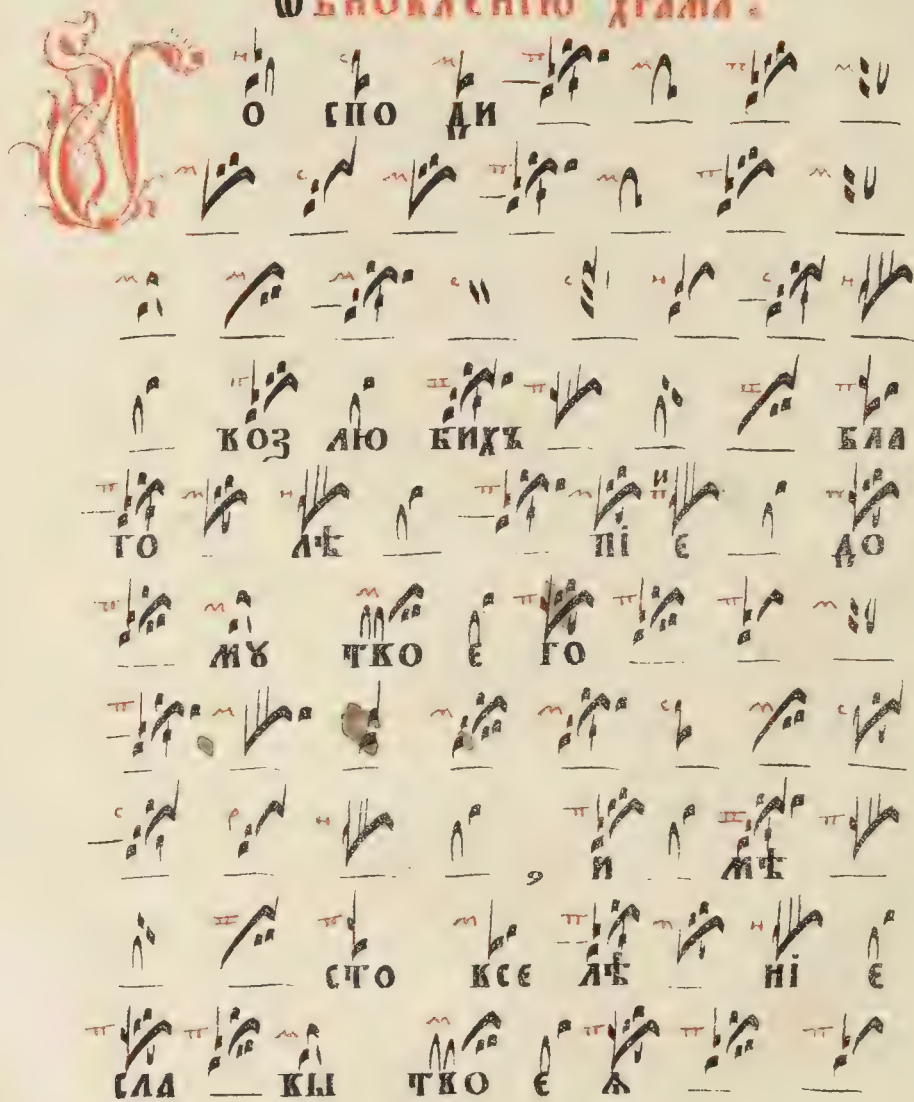 ѡбновленїю храма .
Г о спо ди
воз лю бихъ бла
го лѣ пї е до
мꙋ тво е го
, и мѣ
сто все лѣ нї е
сла вы тво е ѧ